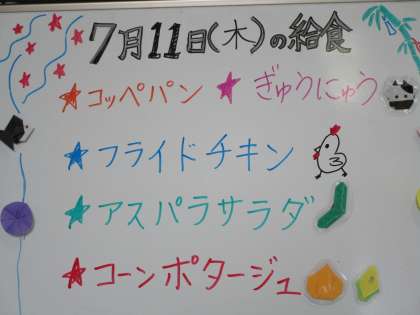 7月11日(木)の給食
★コッペパン ★ぎゅうにゅう
★フライドチキン
★アスパラサラダ
★コーンポタージュ